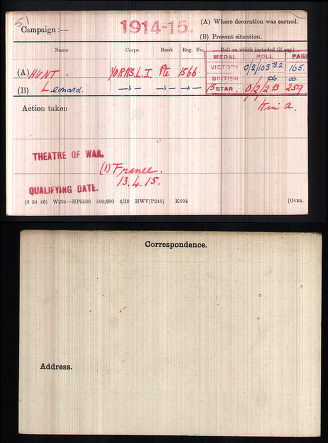 51
Campaign :— 1914-15. (A) Where decoration was earned.
(B) Present situation.
Name Corps Rank Reg. No. Roll on which included (if any).
MEDAL ROLL PAGE
(A) HUNT YORKS L.I. Pte 1566 VICTORY 0/2/103 B22 165.
(B) Leonard. —"— —"— —"— BRITISH do do
15 STAR 0/2/2 B 259
Action taken
K in A.
THEATRE OF WAR.
(1) France.
QUALIFYING DATE.
13.4.15.
(6 34 46) W234—HP5590 500,000 4/19 HWV(P240) K608 [Over.
Correspondence.
Address.